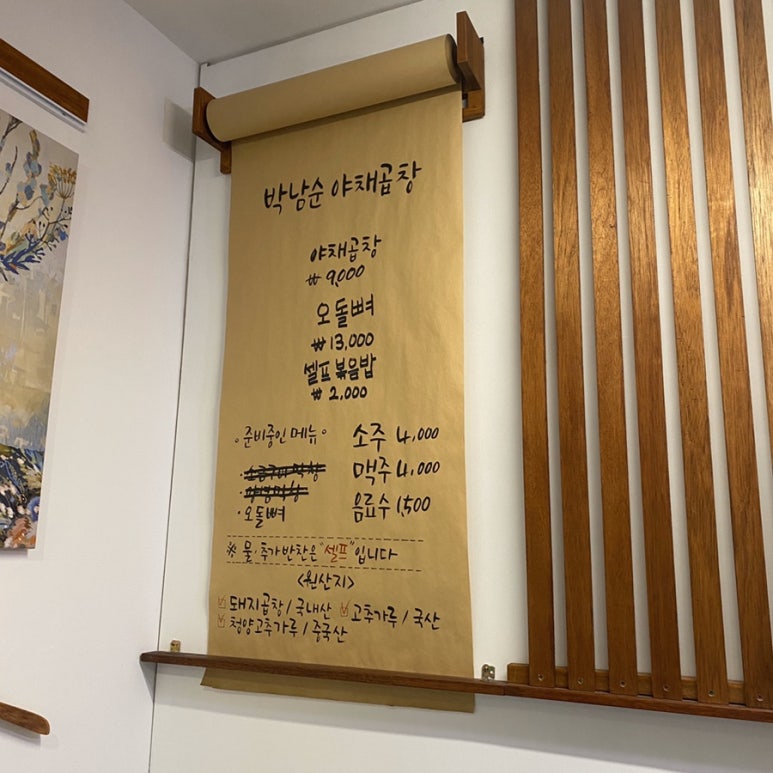 박남순 야채곱창
야채곱창
₩ 9,000
오돌뼈
₩ 13,000
셀프볶음밥
₩ 2,000
。준비중인 메뉴。
· 오돌뼈
소주 4,000
맥주 4,000
음료수 1,500
※ 물·추가반찬은 "셀프"입니다
<원산지>
돼지곱창 / 국내산 고추가루 / 국산
청양고추가루 / 중국산